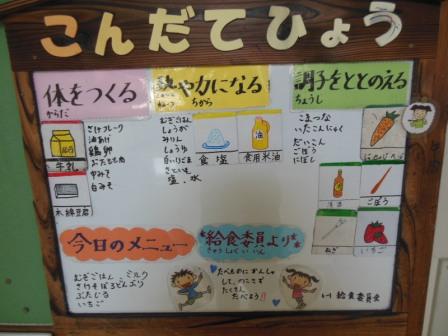 こんだてひょう
体をつくる
からだ
さけフレーク
油あげ
鶏卵
おたもも肉
中みそ
白みそ
牛乳
木綿豆腐
熱や力になる
ねつ ちから
むぎごはん
しょうが
みりん
しょうゆ
白いりごま
さといも
塩、水
食塩
油
食用米油
調子をととのえる
ちょうし
こまつな
いたこんにゃく
だいこん
ごぼう
にぼし
にんじん
清酒
ごぼう
ねぎ
いちご
今日のメニュー
むぎごはん、ミルク
さけそぼろどんぶり
ぶたじる
いちご
給食委員より
きゅうしょくいいん
たべものにかんしゃ
して、のこさず
たくさん
たべよう!!
給食委員会